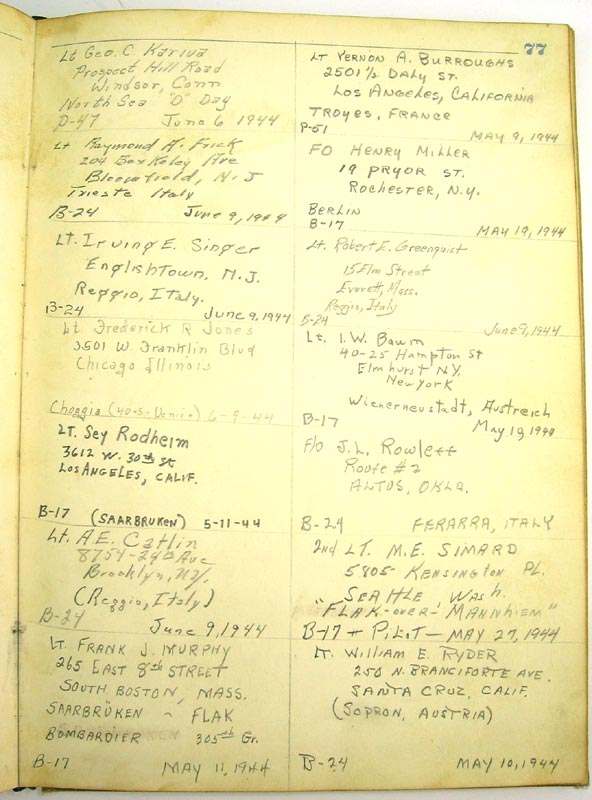 77
Lt Geo. C. Kariva
Prospect Hill Road
Windsor, Conn
North Sea "D" Day
P-47 June 6 1944
Lt Raymond A. Frick
204 Berkeley Ave
Bloomfield, N.J
Trieste Italy
B-24 June 9, 1944
Lt. Irving E. Singer
Englishtown, N.J.
Reggio, Italy.
B-24 June 9, 1944
Lt Frederick R Jones
3501 W. Franklin Blvd
Chicago Illinois
Choggia 6-9-44
LT. Sey Rodheim
3612 W. 30th St
LOS ANGELES, CALIF.
B-17 (SAARBRUKEN) 5-11-44
Lt. A.E. Catlin
8754-24th Ave
Brooklyn, N.Y.
(Reggio, Italy)
B-24 June 9, 1944
LT FRANK J. MURPHY
265 EAST 8th STREET
SOUTH BOSTON, MASS.
SAARBRÜKEN - FLAK
BOMBARDIER 305th Gr.
B-17 MAY 11, 1944
LT VERNON A. BURROUGHS
2501 1/2 DALY ST.
LOS ANGELES, CALIFORNIA
TROYES, FRANCE
P-51 MAY 9, 1944
FO HENRY MILLER
19 PRYOR ST.
ROCHESTER, N.Y.
BERLIN
B-17 MAY 19, 1944
Lt. Robert E. Greenquist
15 Elm Street
Everett, Mass.
Reggio, Italy
B-24 June 9, 1944
Lt. I.W. Baum
40-25 Hampton St
Elmhurst N.Y.
New York
Wienerneustadt, Austreich
B-17 May 10, 1944
F/O J.L. Rowlett
Route #2
ALTUS, OKLA.
B-24 FERARRA, ITALY
2nd LT. M.E. SIMARD
5805- KENSINGTON PL.
SEATTLE Wash.
"FLAK-over- MANNHIEM"
B-17 + PILOT - MAY 27, 1944
LT. WILLIAM E. RYDER
250 N. BRANCIFORTE AVE.
SANTA CRUZ, CALIF.
(SOPRON, AUSTRIA)
B-24 MAY 10, 1944